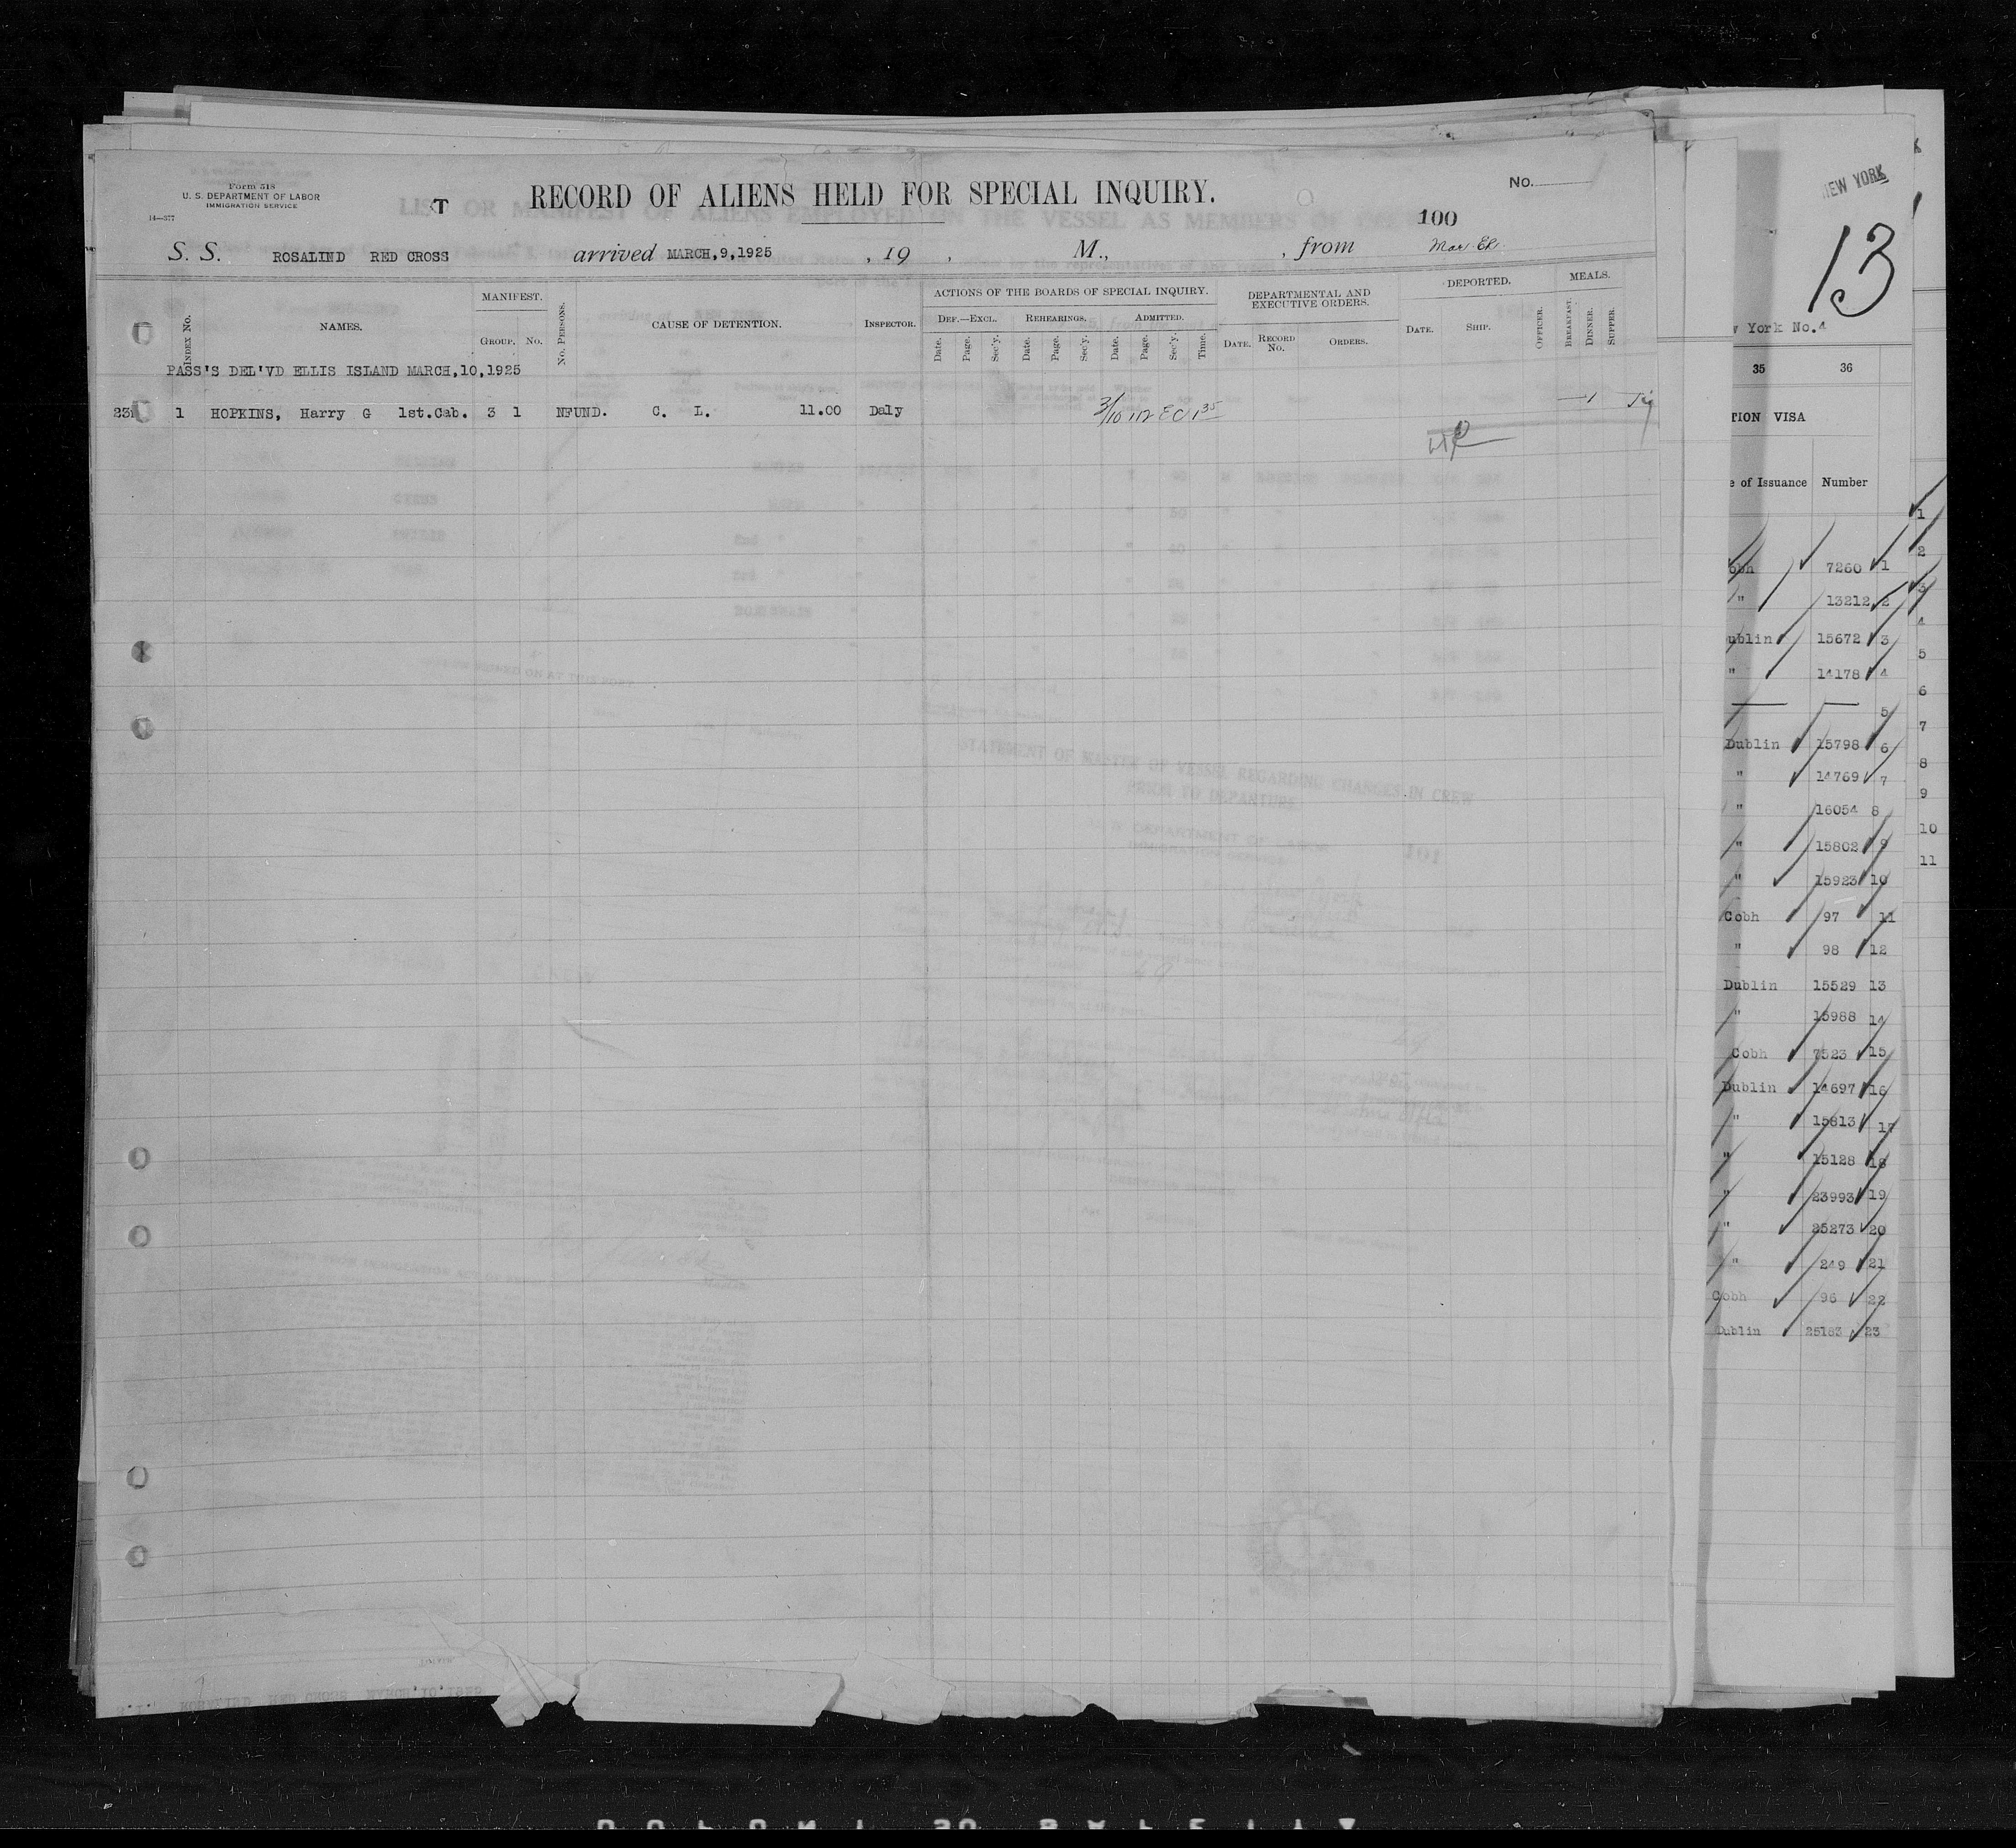 Form 518
U. S. DEPARTMENT OF LABOR
IMMIGRATION SERVICE
14—377
T
RECORD OF ALIENS HELD FOR SPECIAL INQUIRY.
No.
100
S. S. ROSALIND RED CROSS arrived MARCH,9,1925 , 19 , M., , from
INDEX No. NAMES. MANIFEST. GROUP. No. No. PERSONS. CAUSE OF DETENTION. INSPECTOR.
ACTIONS OF THE BOARDS OF SPECIAL INQUIRY.
DEF.—EXCL. REHEARINGS. ADMITTED.
Date. Page. Sec'y. Date. Page. Sec'y. Date. Page. Sec'y. Time.
DEPARTMENTAL AND EXECUTIVE ORDERS.
DATE. RECORD No. ORDERS.
DEPORTED.
DATE. SHIP. OFFICER.
MEALS.
BREAKFAST. DINNER. SUPPER.
PASS'S DEL'VD ELLIS ISLAND MARCH,10,1925
1 HOPKINS, Harry G 1st.Cab. 3 1 NFUND. C. L. 11.00 Daly 3/10 112 EC 1 35 1
NEW YORK
13
York No. 4
35 36
TION VISA
e of Issuance Number
obh 7260 1
" 13212 2
ublin 15672 3
" 14178 4
— — 5
Dublin 15798 6
" 14769 7
" 16054 8
" 15802 9
" 15923 10
Cobh 97 11
" 98 12
Dublin 15529 13
" 15988 14
Cobh 7523 15
Dublin 14697 16
" 15813 17
" 15128 18
" 23993 19
" 25273 20
" 249 21
Cobh 96 22
Dublin 25183 23
1
2
3
4
5
6
7
8
9
10
11